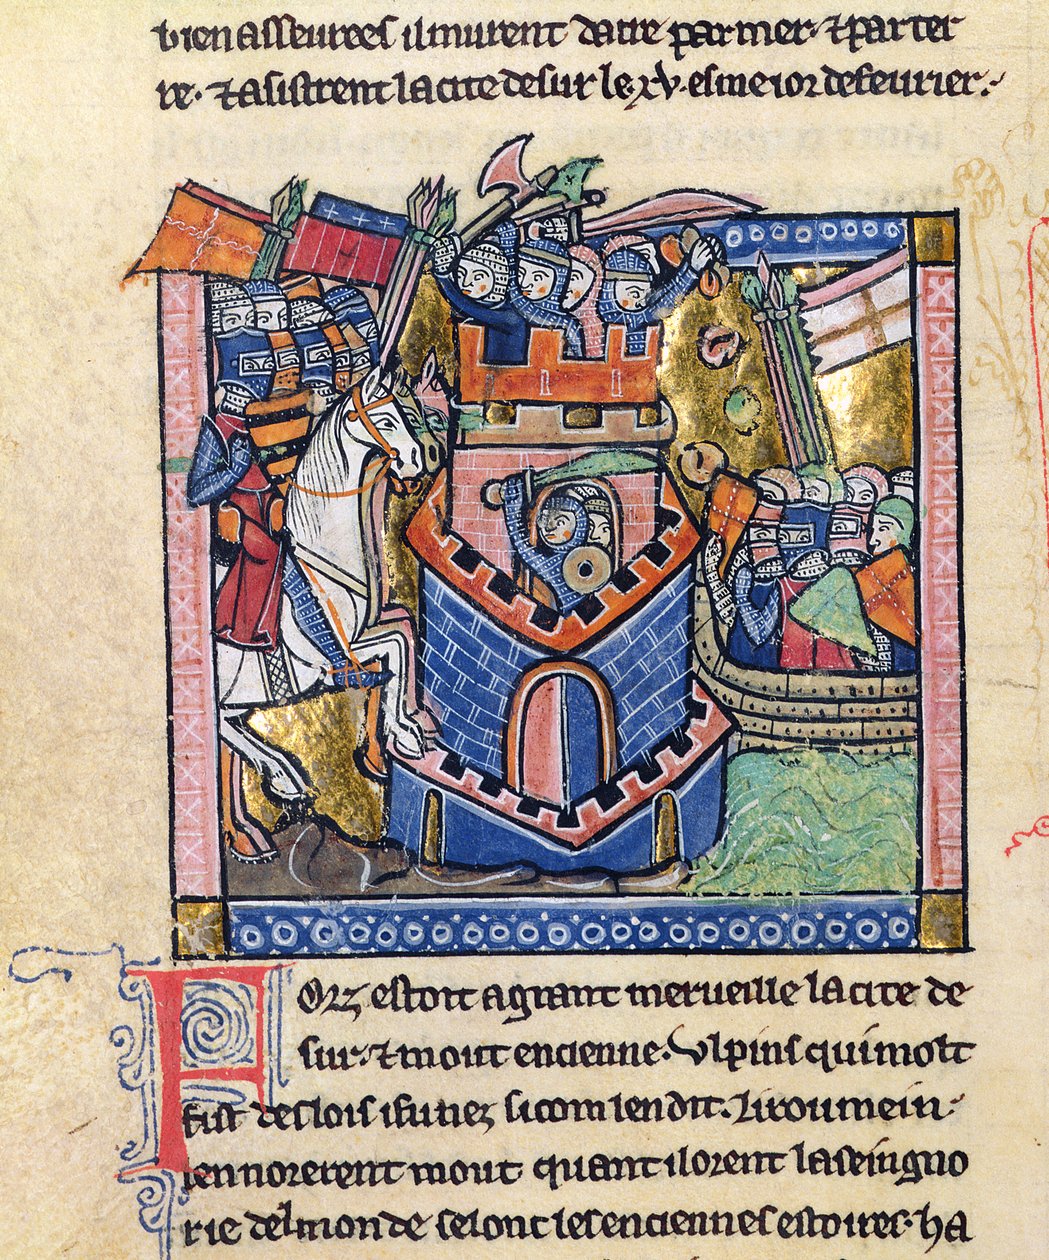 bien asseurees il murent dacre par mer· ⁊ par ter
re· ⁊ asistrent la cite de sur le·xv·esme ior de feurier·
Forz estoit a grant merueille la cite de
sur·⁊ mout encienne· Vlpins qui molt
fist des lois i fu nez si com len dit· Li roumein·
lennorerent mout quant il orent la seingno
rie del monde selonc les enciennes estoires· ha